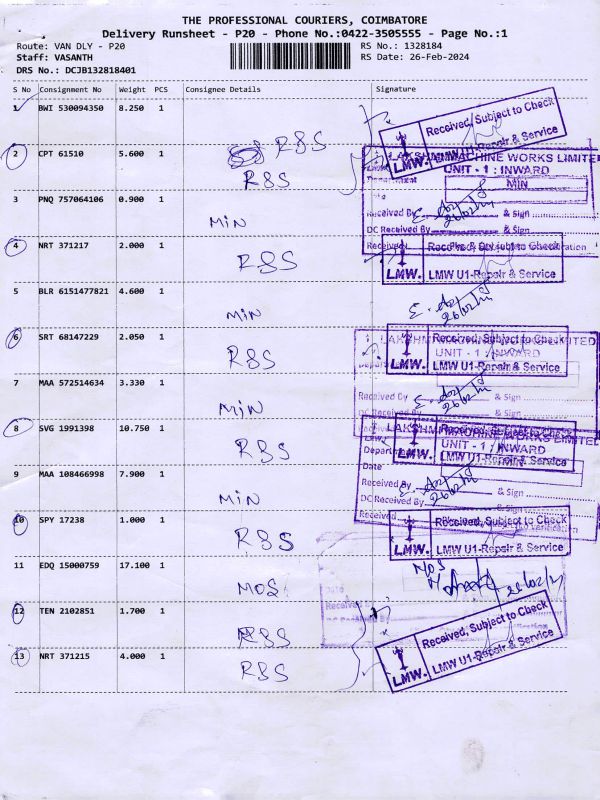 THE PROFESSIONAL COURIERS, COIMBATORE
Delivery Runsheet - P20 - Phone No.:0422-3505555 - Page No.:1
Route: VAN DLY - P20 RS No.: 1328184
Staff: VASANTH RS Date: 26-Feb-2024
DRS No.: DCJB132818401
S No Consignment No Weight PCS Consignee Details Signature
1 BWI 530094350 8.250 1 R&S
Received, Subject to Check
LMW. LMW U1-Repair & Service
2 CPT 61510 5.600 1 R&S
LAKSHMI MACHINE WORKS LIMITED
UNIT - 1 : INWARD
MIN
3 PNQ 757064106 0.900 1 MIN
Received By & Sign
DC Received By & Sign
4 NRT 371217 2.000 1 R&S
Received, Subject to Check
LMW. LMW U1-Repair & Service
5 BLR 6151477821 4.600 1 MIN
6 SRT 68147229 2.050 1 R&S
Received, Subject to Check
LAKSHMI MACHINE WORKS LIMITED
UNIT - 1 / INWARD
LMW. LMW U1-Repair & Service
7 MAA 572514634 3.330 1 MIN
Received By & Sign
DC Received By & Sign
8 SVG 1991398 10.750 1 R&S
Received, Subject to Check
LAKSHMI MACHINE WORKS LIMITED
UNIT - 1 / INWARD
LMW. LMW U1-Repair & Service
9 MAA 108466998 7.900 1 MIN
Date
Received By & Sign
DC Received By & Sign
10 SPY 17238 1.000 1 R&S
Received, Subject to Check
LMW. LMW U1-Repair & Service
11 EDQ 15000759 17.100 1 MOS
MOS
12 TEN 2102851 1.700 1 R&S
13 NRT 371215 4.000 1 R&S
Received, Subject to Check
LMW. LMW U1-Repair & Service